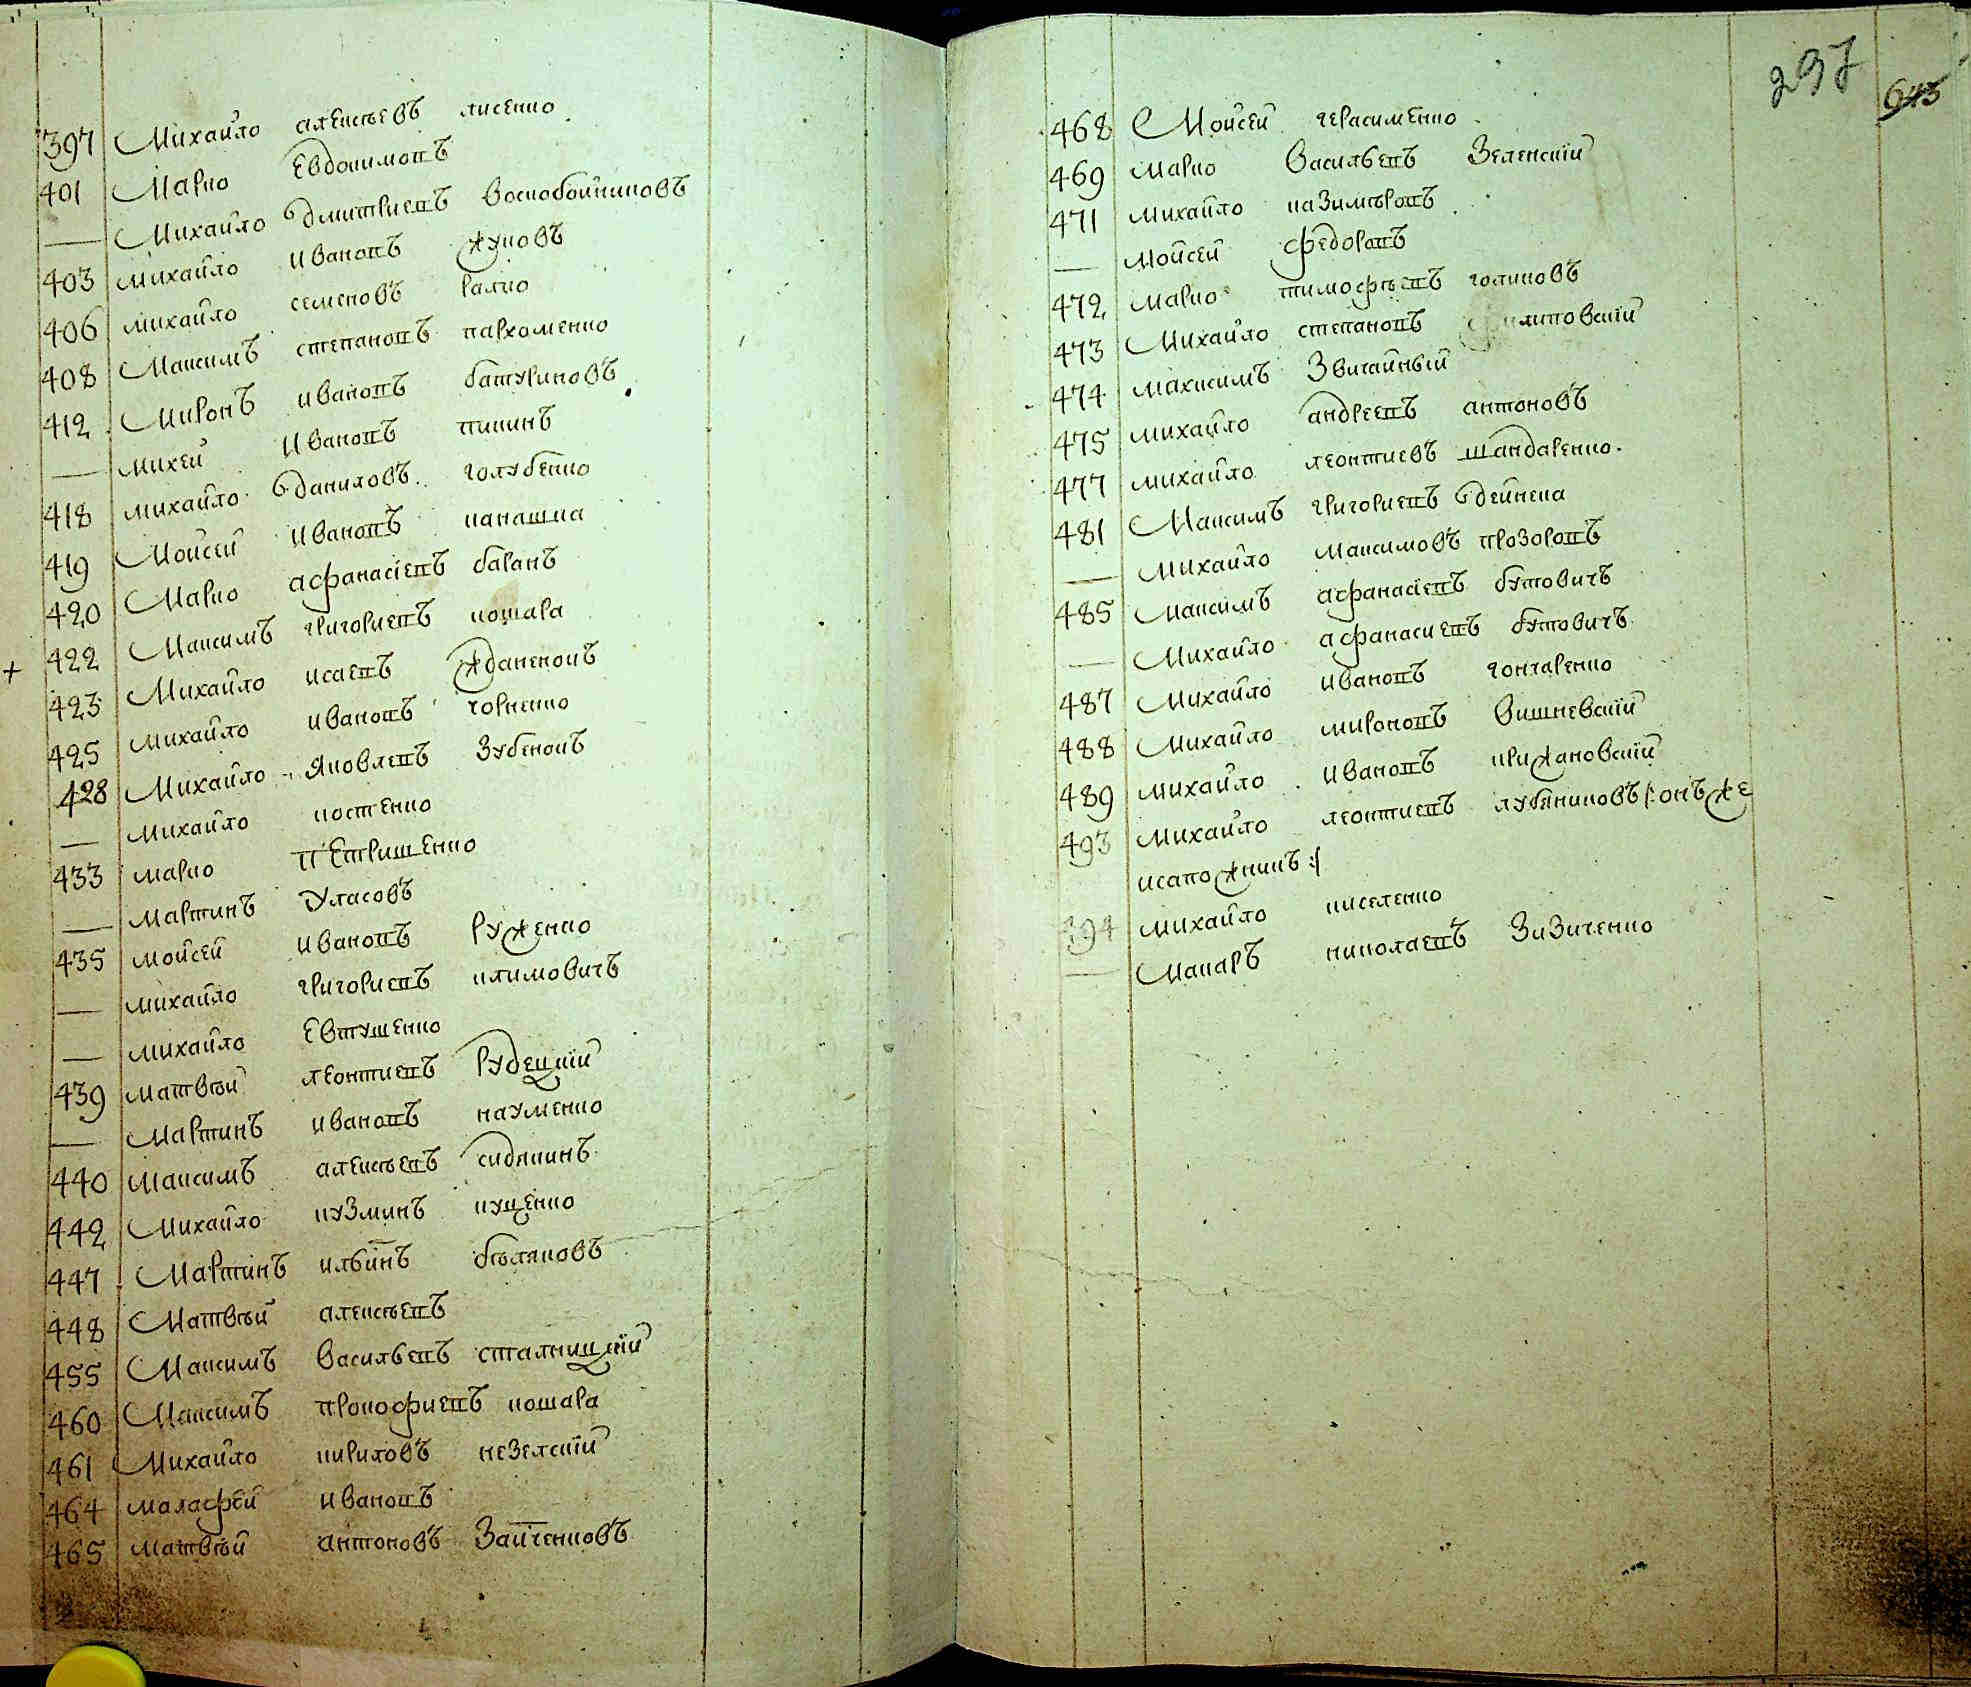 397 Михайло алексѣевъ лисенко
401 Марко Евдокимовъ
— Михайло дмитриевъ Воскобойниковъ
403 михайло ивановъ жуковъ
406 михайло семеновъ Ралко
408 Максимъ степановъ пархоменко
412 Миронъ ивановъ батуриновъ
— михей ивановъ пикинъ
418 михайло даниловъ голубенко
419 Мойсей ивановъ канашка
420 Марко афанасіевъ баранъ
+ 422 Максимъ григориевъ кошара
423 Михайло исаевъ жданенокъ
425 михайло ивановъ чорненко
428 Михайло Яковлевъ Зубенокъ
— михайло костенко
433 марко пЕтрищенко
— мартинъ Уласовъ
435 мойсей ивановъ Руженко
— михайло григориевъ климовичъ
— михайло Евтушенко
439 матвѣй леонтиевъ Рудецкій
— мартинъ ивановъ науменко
440 максимъ алексѣевъ сидякинъ
442 михайло кузминъ куценко
447 Мартинъ ильинъ бѣляковъ
448 Матвѣй алексѣевъ
455 Максимъ Васильевъ сталницкій
460 Максимъ прокофиевъ кошара
461 Михайло кириловъ незелскій
464 малафѣй ивановъ
465 матвѣй антоновъ Зайченковъ
297
643
468 Мойсей герасименко
469 марко Васильевъ Зеленскій
471 михайло казимѣровъ
— мойсей федоровъ
472 марко тимофѣевъ голиковъ
473 Михайло степановъ липовскій
474 махисимъ Звичайный
475 михайло андреевъ антоновъ
477 михайло леонтиевъ шандаренко.
481 Максимъ григориевъ дейнека
— михайло максимовъ прозоровъ
485 максимъ афанасіевъ бутовичъ
— михайло афанасиевъ бутовичъ
487 михайло ивановъ гончаренко
488 михайло мироновъ Вишневскій
489 михайло ивановъ крижановскій
493 михайло леонтиевъ лубяниковъ /: онъ же
исапожникъ :/
394 михайло киселенко
— макаръ николаевъ Зизиченко